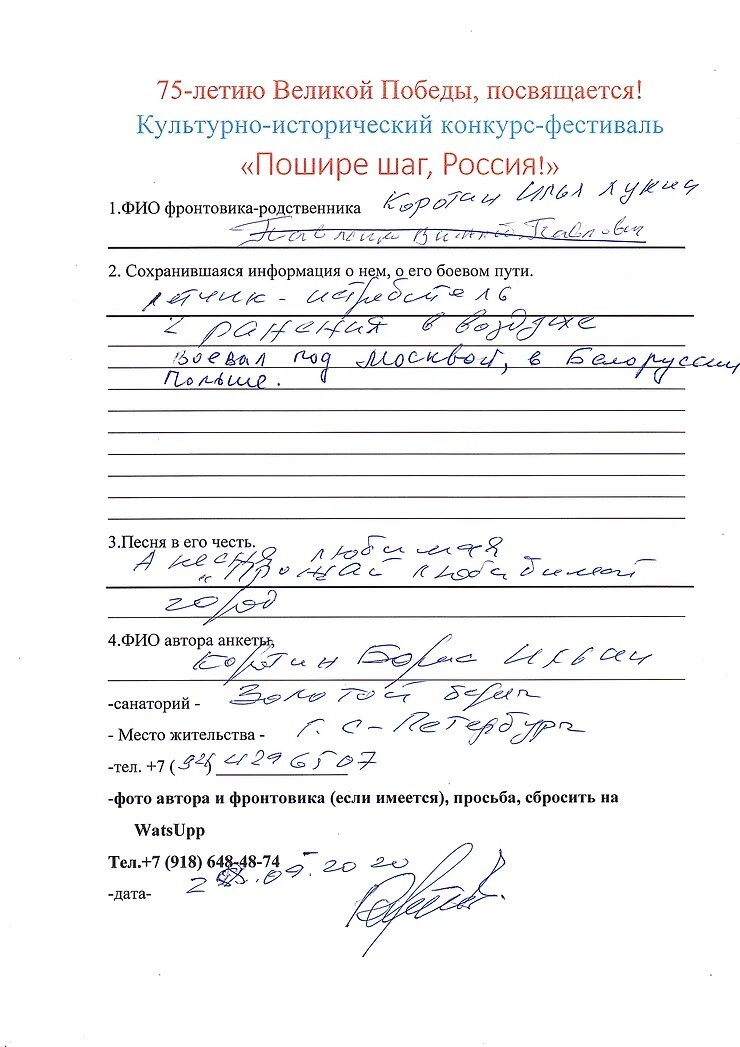 75-летию Великой Победы, посвящается!
Культурно-исторический конкурс-фестиваль
«Пошире шаг, Россия!»
1.ФИО фронтовика-родственника Илья
Павлович
2. Сохранившаяся информация о нем, о его боевом пути.
летчик - истребитель
2 ранения в воздухе
воевал под Москвой, в Белоруссии
Польше.
3.Песня в его честь.
А песня любимая
"Прощай любимый
город
4.ФИО автора анкеты,
Коротин Борис Ильич
-санаторий - Золотой берег
- Место жительства - г. С-Петербург
-тел. +7 ( ) 4296507
-фото автора и фронтовика (если имеется), просьба, сбросить на
WatsUpp
Тел.+7 (918) 648-48-74
-дата- .09.2020